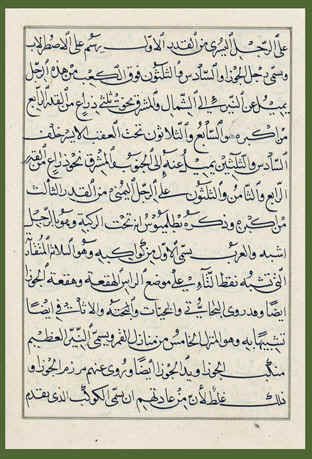 على الرجل اليسرى من القدر الاول يرسم على الاصطرلاب
وسمى رجل الجوزا والسادس والثلثون فوق الكعب من هذه الرجل
يميل عن النير الى الشمال والمشرق نحو ثلثى ذراع من القدر الرابع
من اكبره والسابع والثلاثون تحت العقب الايسر خلف
السادس والثلثين يميل عنه الى الجنوب والمشرق نحو ذراع من القدر
الرابع والثامن والثلثون على الرجل اليمنى من القدر الثالث
من اكبره وذكره بطلميوس انه تحت الركبة وهو بالرجل
اشبه والعرب تسمى الاول من كواكبه وهو الثلاثة المتقاربة
التى تشبه نقط الثاء على موضع الراس الهقعة وهقعة الجوزا
ايضا وقد روى التحائى والتحيات والتحية والاثافى ايضا
تشبيها به وهو المنزل الخامس من منازل القمر ويسمى النير العظيم
منكب الجوزا ويد الجوزا ايضا وروى عنهم مرزم الجوزا و
ذلك غلط لان من عادتهم ان يسمى الكوكب الذى يتقدم